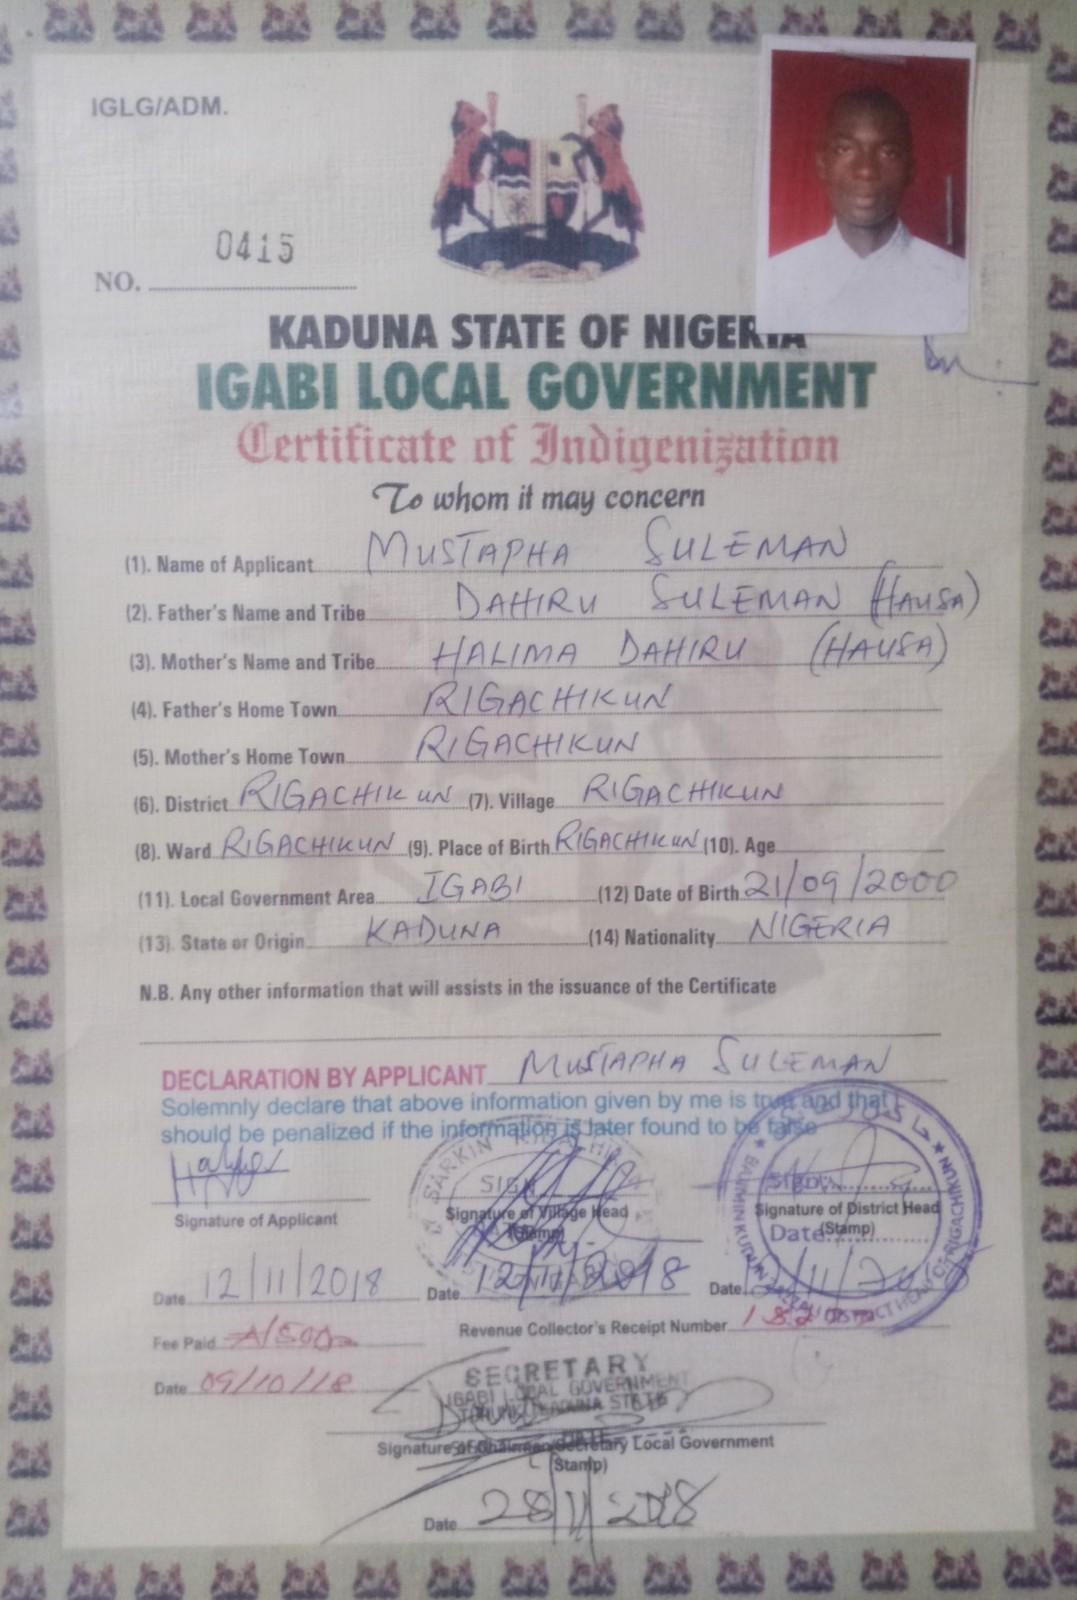 IGLG/ADM.
NO. 0415
KADUNA STATE OF NIGERIA
IGABI LOCAL GOVERNMENT
Certificate of Indigenization
To whom it may concern
(1). Name of Applicant MUSTAPHA SULEMAN
(2). Father's Name and Tribe DAHIRU SULEMAN (HAUSA)
(3). Mother's Name and Tribe HALIMA DAHIRU (HAUSA)
(4). Father's Home Town RIGACHIKUN
(5). Mother's Home Town RIGACHIKUN
(6). District RIGACHIKUN (7). Village RIGACHIKUN
(8). Ward RIGACHIKUN (9). Place of Birth RIGACHIKUN (10). Age
(11). Local Government Area IGABI (12) Date of Birth 21/09/2000
(13). State or Origin KADUNA (14) Nationality NIGERIA
N.B. Any other information that will assists in the issuance of the Certificate
DECLARATION BY APPLICANT MUSTAPHA SULEMAN
Solemnly declare that above information given by me is true and that I
should be penalized if the information is later found to be false
SARKIN
SIGN
SIGN:
Signature of Applicant Signature of Village Head Signature of District Head
(Stamp) (Stamp)
Date
DISTRICT HEAD OF RIGACHIKUN
Date 12/11/2018 Date 12/11/2018 Date 12/11/
Fee Paid Revenue Collector's Receipt Number
Date 09/10/18
SECRETARY
IGABI LOCAL GOVERNMENT
KADUNA STATE
Signature of Chairman/Secretary Local Government
(Stamp)
Date 28/11/2018